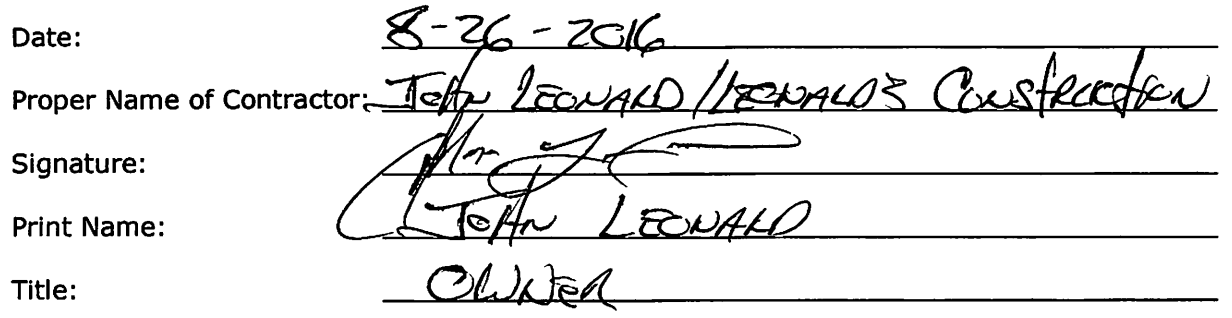 Date: 8-26-2016
Proper Name of Contractor: John Leonard/Leonard's Construction
Signature:
Print Name: John Leonard
Title: Owner